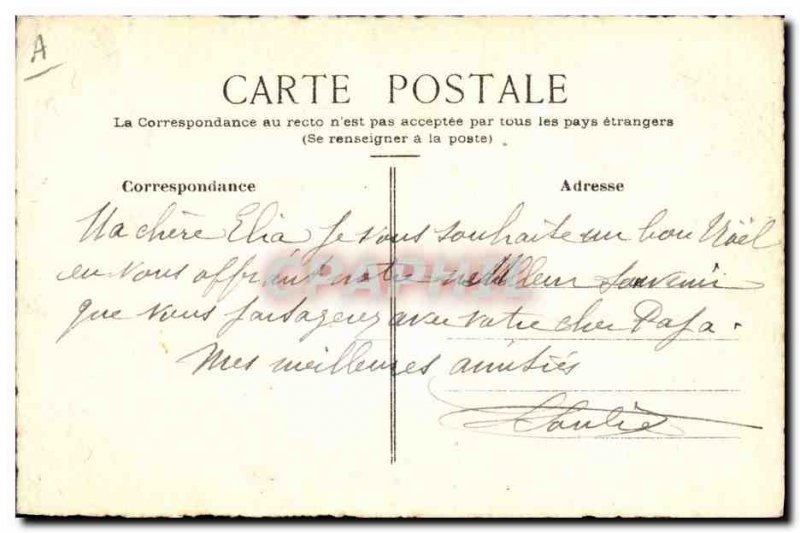 A
CARTE POSTALE
La Correspondance au recto n'est pas acceptée par tous les pays étrangers
(Se renseigner à la poste)
Correspondance
Adresse
Ma chère Elia je vous souhaite un bon Noël
en vous offrant notre meilleur souvenir
que vous partagerez avec votre cher Papa.
Mes meilleures amitiés
CPAPHIL